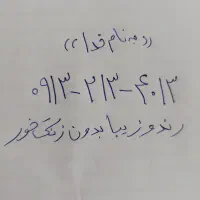 (( به نام خدا ))
۰۹۱۳-۲۱۳-۴۰۱۳
رند و زیبا بدون زنگ خور